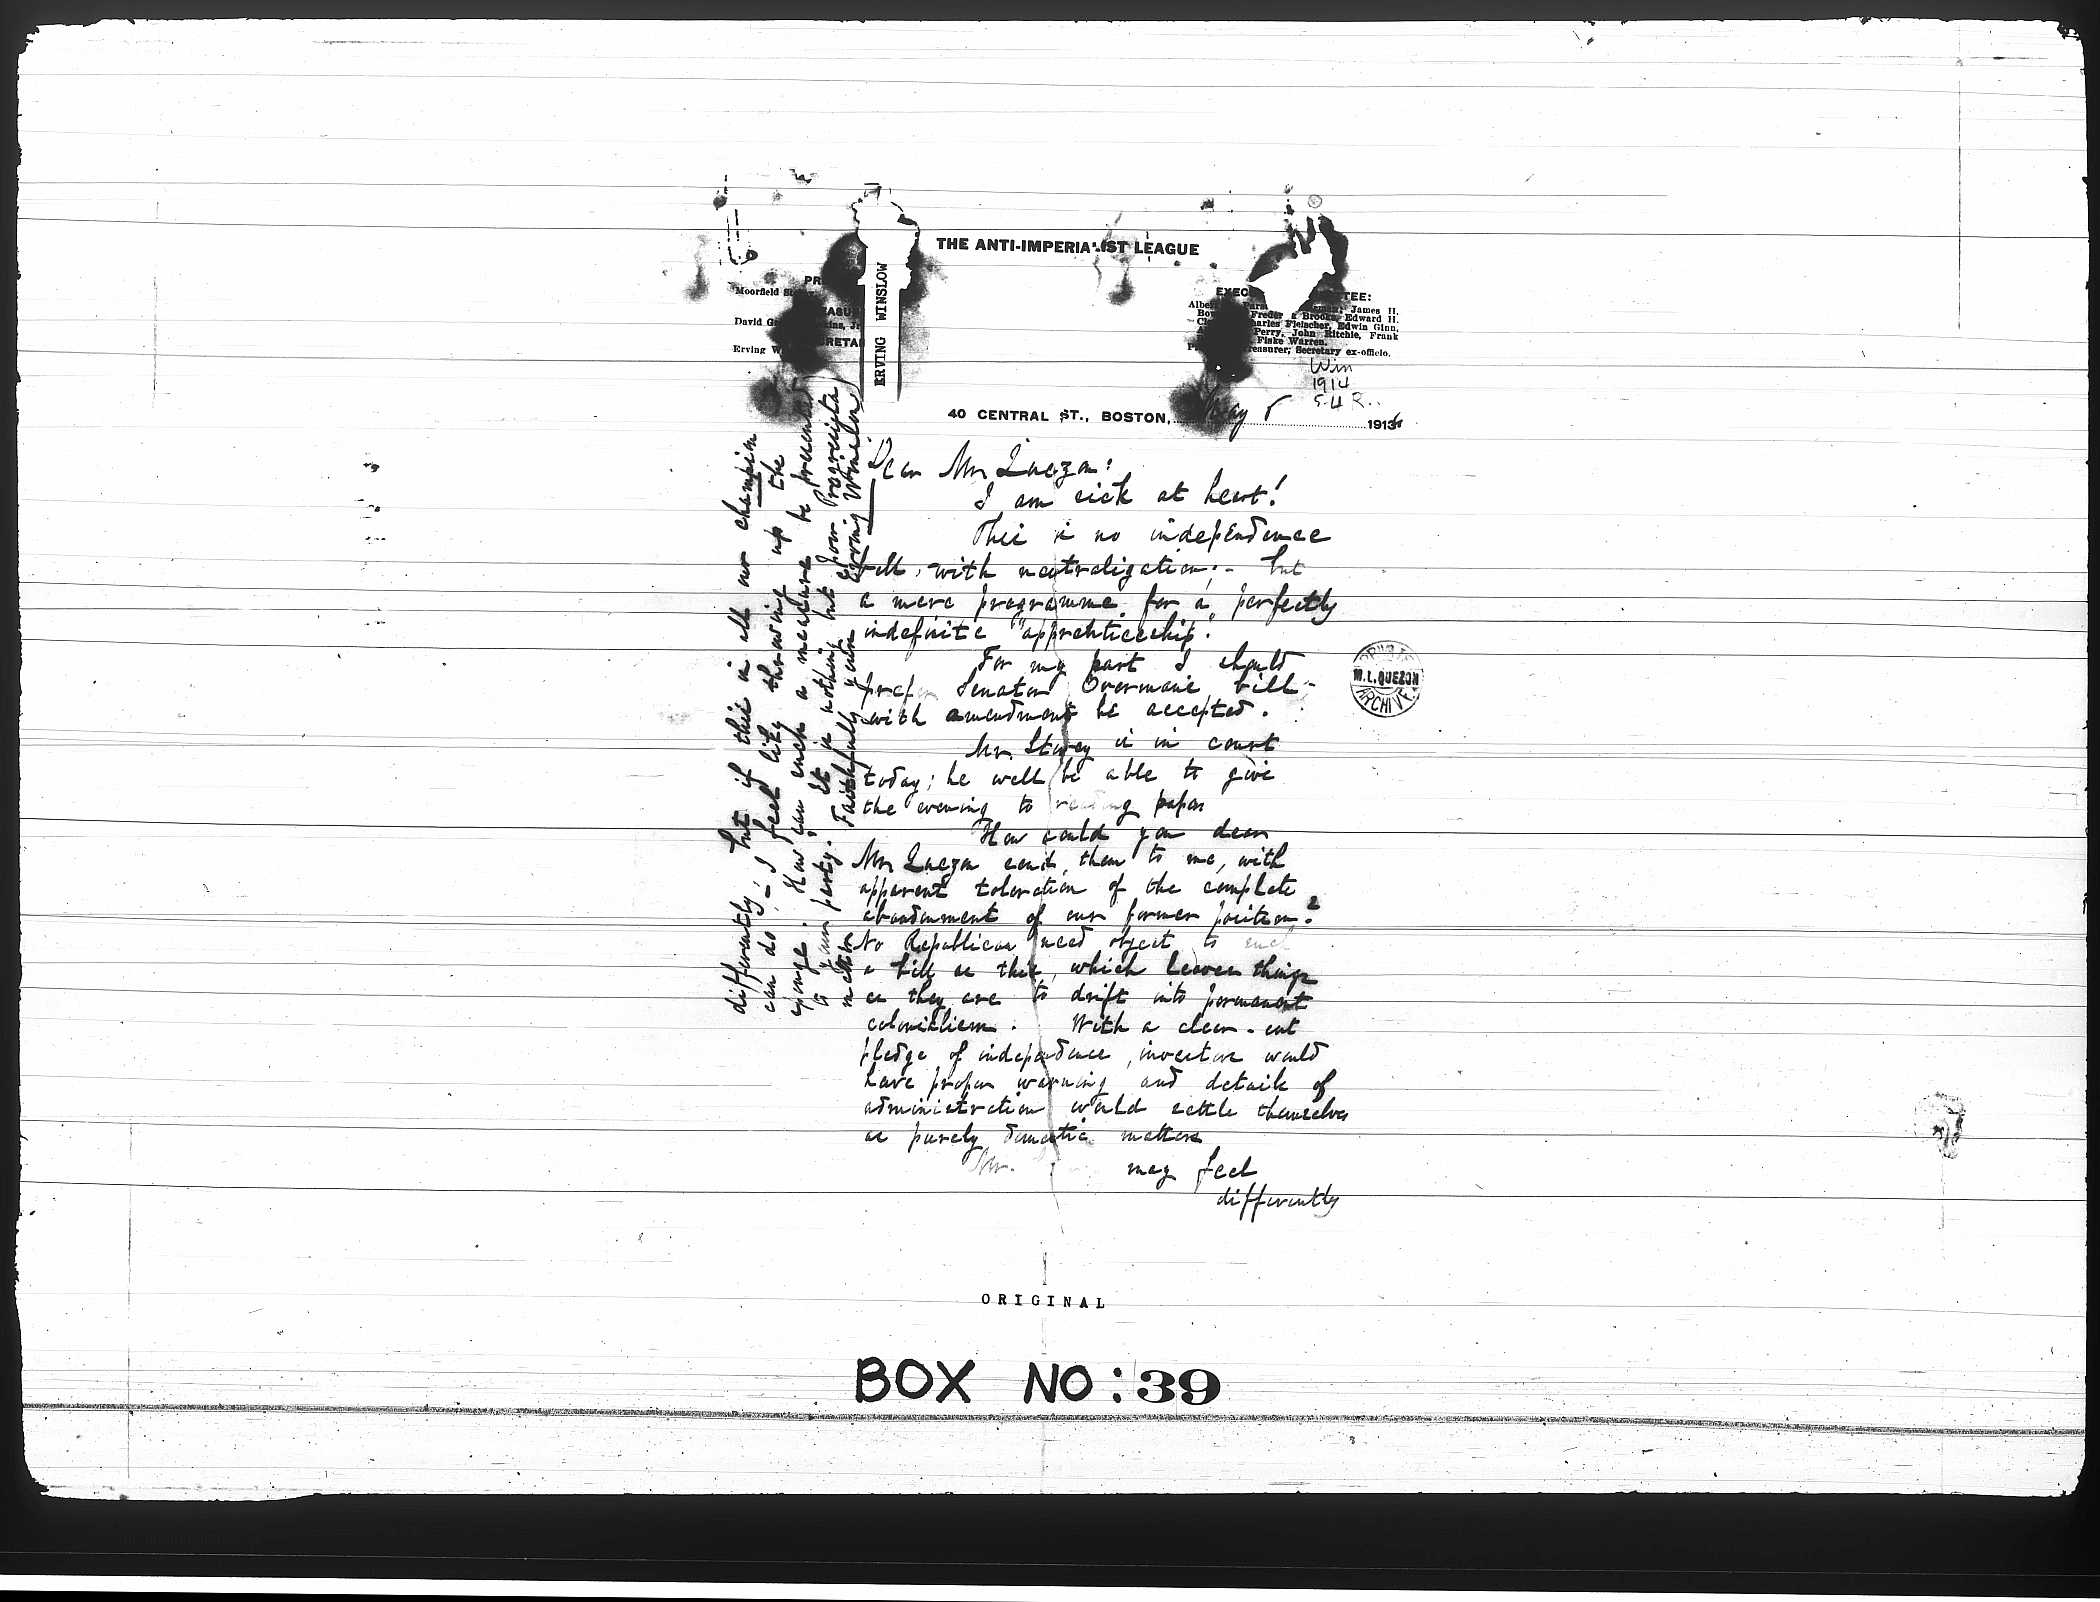 THE ANTI-IMPERIALIST LEAGUE
ERVING WINSLOW
Moorfield
David
Erving
TEE:
James H.
Brooks, Edward H.
Charles Fleischer, Edwin Ginn,
Perry, John Ritchie, Frank
Fiske Warren.
Treasurer, Secretary ex-officio.
Win
1914
40 CENTRAL ST., BOSTON, May 5 1914
Dear Mr Quezon:
I am sick at heart!
This is no independence
bill, with neutralization;- but
a mere programme for a perfectly
indefinite "apprenticeship."
For my part I should
prefer Senator Overman's bill-
with amendment be accepted.
Mr. Storey is in court
today; he will be able to give
the evening to reading paper
How could you dear
Mr Quezon send them to me, with
apparent toleration of the complete
abandonment of our former position?
No Republican need object to such
a bill as this, which leaves things
as they are to drift into permanent
colonialism. With a clear-cut
pledge of independence, investors would
have proper warning and details of
administration would settle themselves
as purely domestic matters
Mr. may feel
differently
differently; but if this is all our champion
can do,- I feel like throwing up the
sponge. How can such a measure be presented
to your party. It is nothing but your Progresista
matter
Faithfully yours Erving Winslow
M.L. QUEZON
ARCHIVE
ORIGINAL
BOX NO: 39